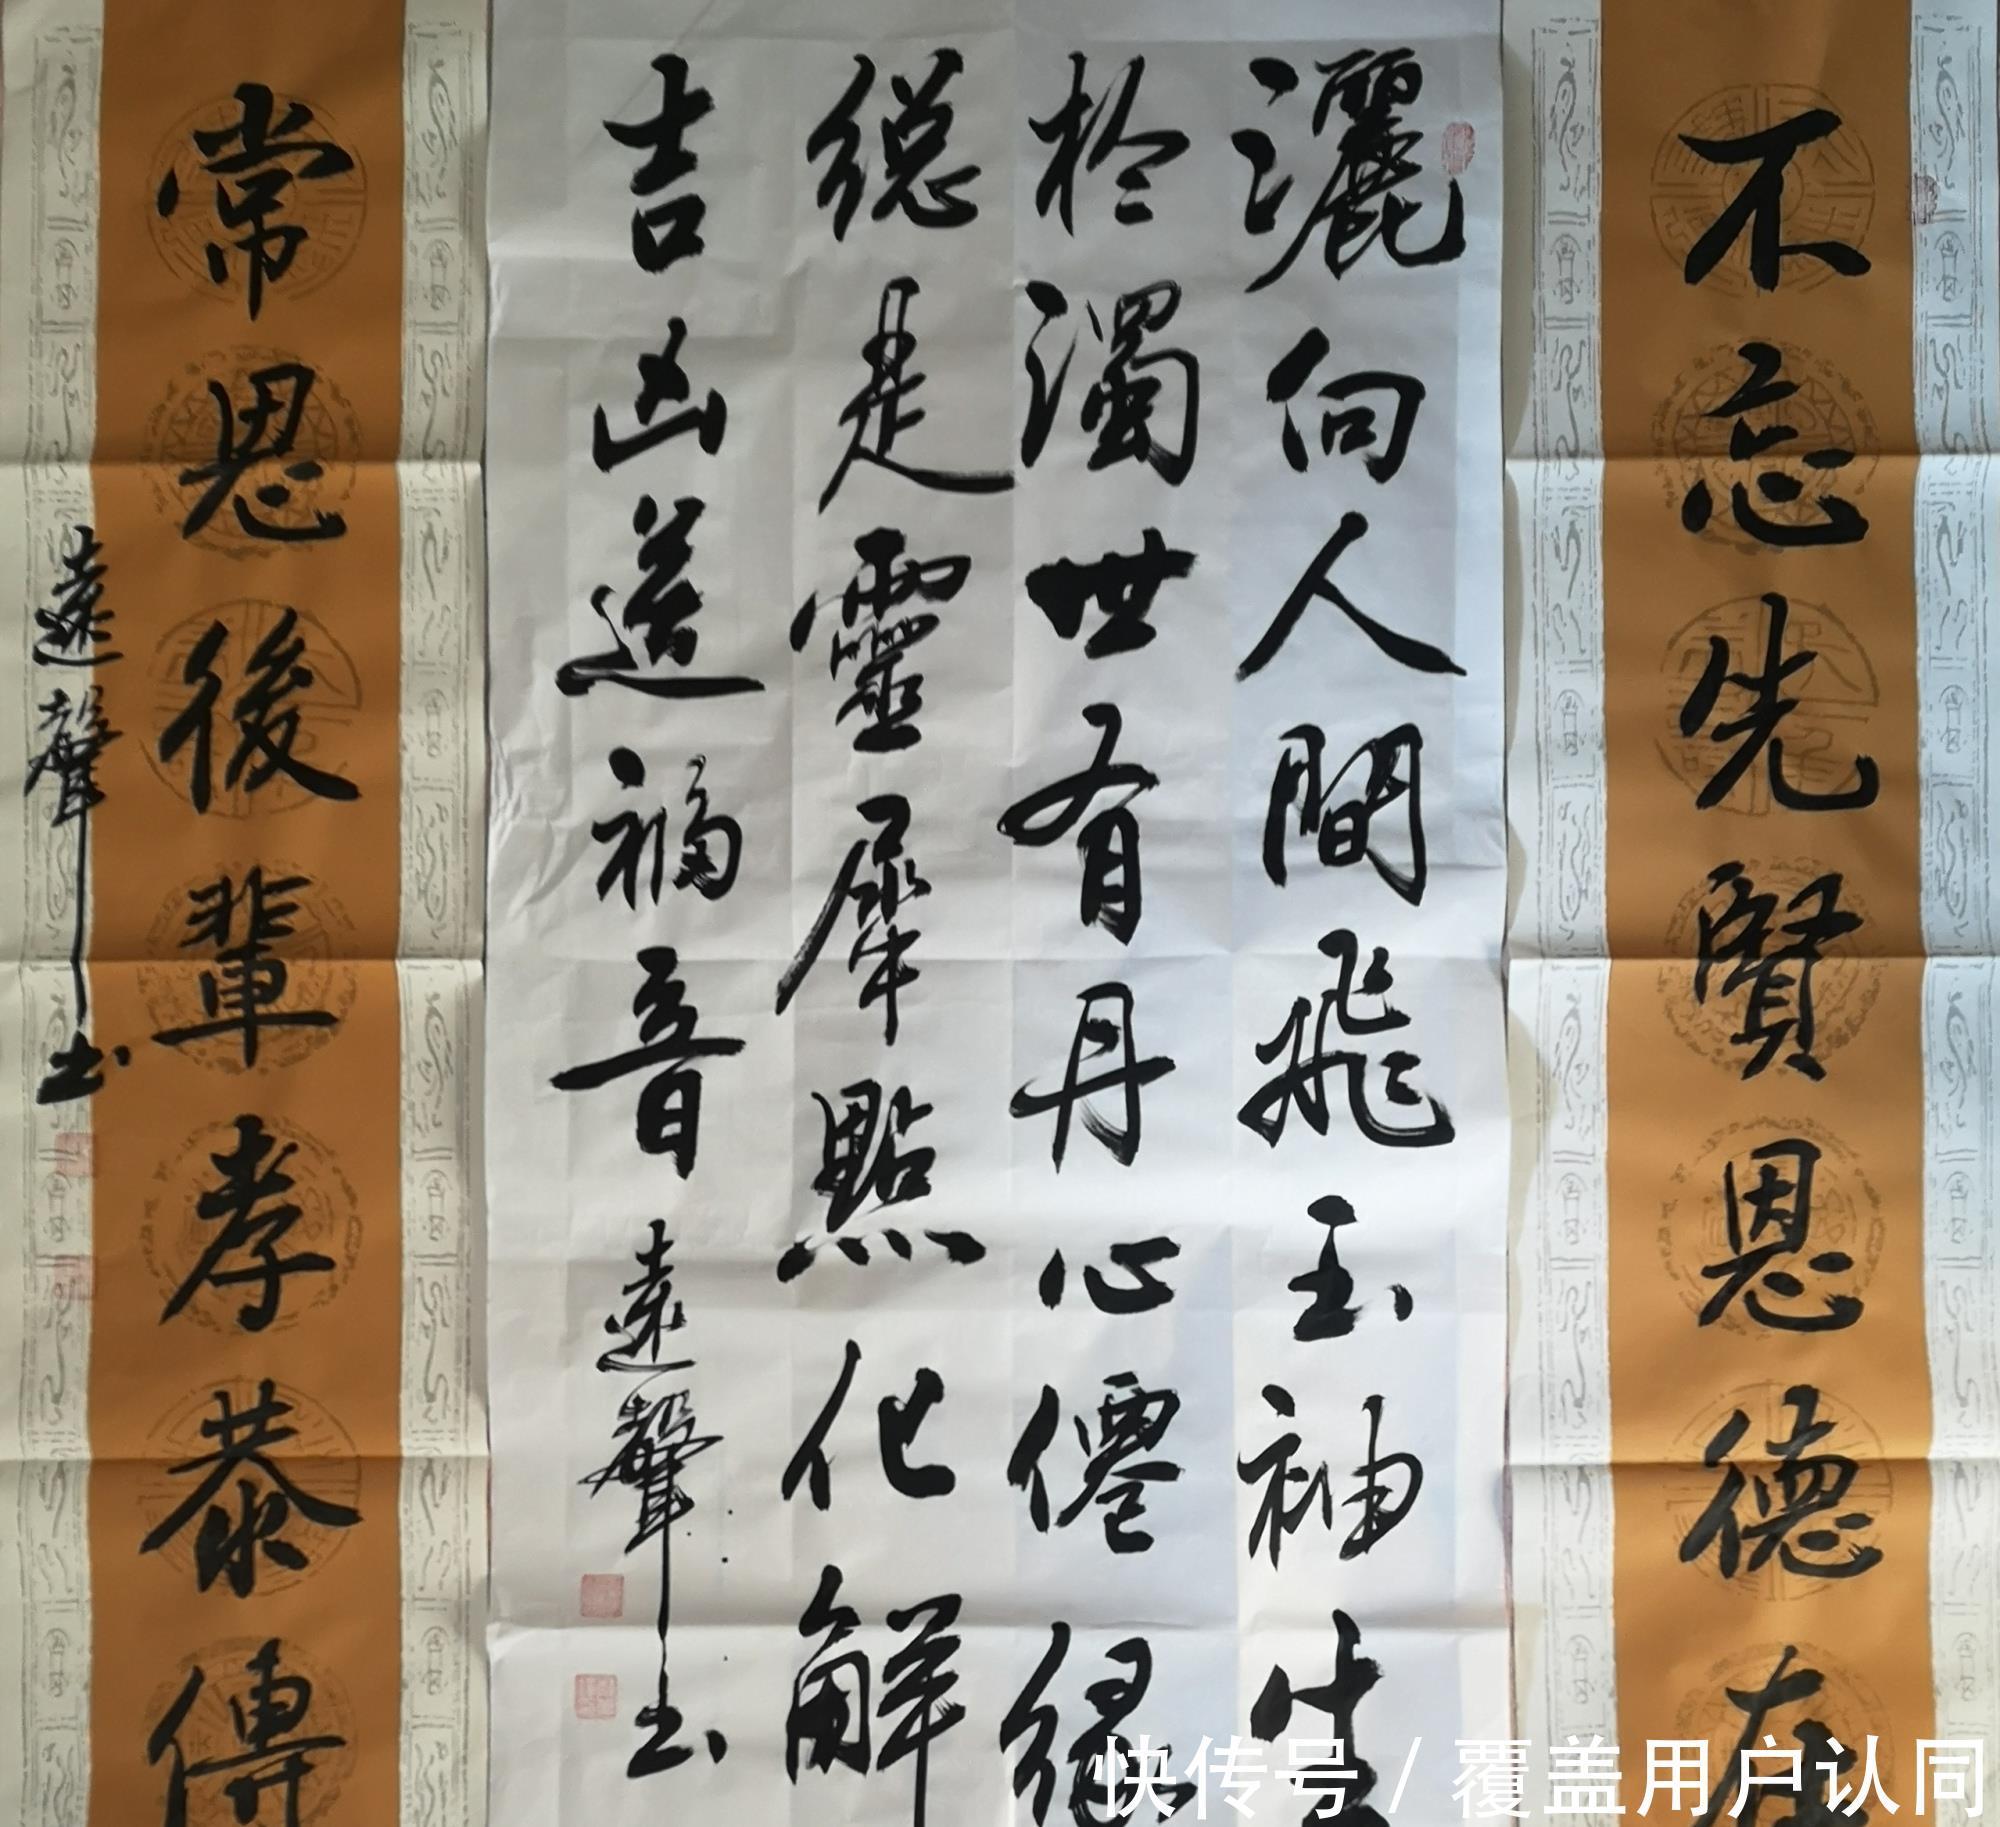 不忘先賢恩德在
灑向人間飛玉神生
於濁世有丹心僊緣
總是靈犀點化解
吉凶送福音
遠聲书
常恩後輩孝恭傳
遠聲书
快传号/覆盖用户认同